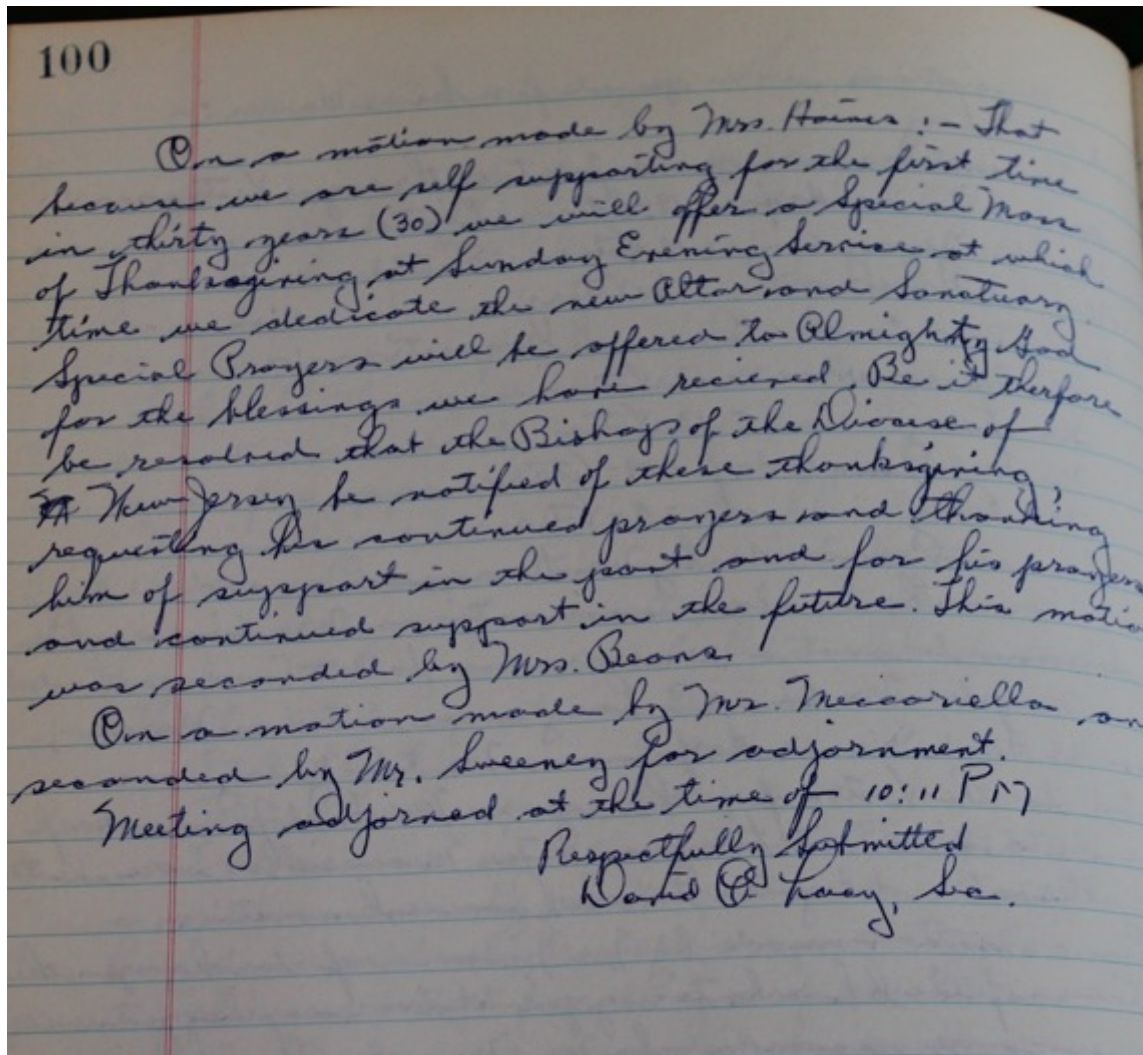 100
On a motion made by Mrs. Haines :- That
because we are self supporting for the first time
in thirty years (30) we will offer a Special Mass
of Thanksgiving at Sunday Evening Service at which
time we dedicate the new Altar and Sanatuary
Special Prayers will be offered to Almighty God
for the blessings we have recieved. Be it therfore
be resolved that the Bishop of the Diocese of
New Jersey be notified of these thanksgiving,
requesting his continued prayers and thanking
him of support in the past and for his prayers
and continued support in the future. This motio
was seconded by Mrs. Beans.
On a motion made by Mr. Meccariella an
seconded by Mr. Sweeney for adjornment.
Meeting adjorned at the time of 10:11 PM
Respectfully Submitted
David Sec.